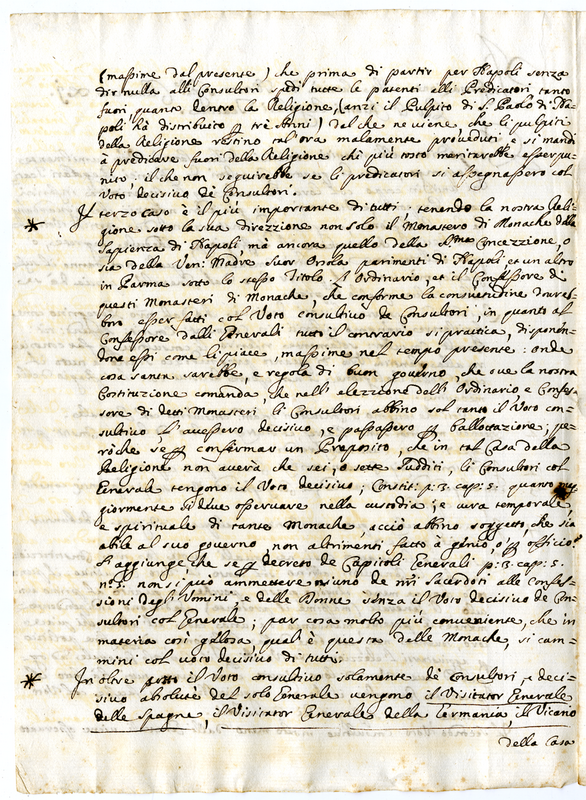 (massime dal presente) che prima di partir per Napoli senza
dir nulla alli Consultori spedì tutte le patenti alli Predicatori tanto
fuori, quanto dentro la Religione (anzi il Pulpito di S. Paolo di Na=
poli hà distribuito per trè Anni) Dal che ne viene, che li pulpiti
della Religione restino tal'ora malamente proveduti, e si mandi
à predicare fuori della Religione chi più tosto meritarebbe esser pu=
nito; il che non seguirebbe se li predicatori si assegnassero col
Voto decisivo de Consultori.
* Il terzo caso è il più importante di tutti; tenendo la nostra Reli=
gione sotto la sua direzzione non solo il Monastero di Monache della
Sapienza di Napoli, mà ancora quello della SS.ma Concezzione, o
sia della Ven: Madre Suor Orsola parimenti di Napoli et un altro
in Parma sotto lo stesso Titolo. L'Ordinario, et il Confessore di
questi Monasteri di Monache, che conforme la consuetudine dovreb=
bero esser fatti col Voto consultivo de Consultori, in quanto al
Confessore dalli Generali tutto il contrario si prattica, disponen=
done essi come li piace, massime nel tempo presente: onde
cosa santa sarebbe, e regola di buon governo, che ove la nostra
Costituzione comanda, che nell'elezzione dell'Ordinario e Confes=
sore di detti Monasteri li Consultori abbino sol tanto il Voto con=
sultivo, l'avessero decisivo, e passasse per ballottazione; pe=
rò che se per confirmar un Proposito, che in tal Casa della
Religione non averà che sei, o sette Sudditi, li Consultori col
Generale tengono il Voto decisivo, Constit: p: 3. cap: 8. quanto mag
giormente si deve osservare nella custodia, e cura temporale,
e spirituale di tante Monache, acciò abbino soggetto, che sia
abile al suo governo, non altrimenti fatto à genio, o per officio?
S'aggiunge che se per decreto de Capitoli Generali p: 3. cap: 5.
n.o 5. non si può ammettere niuno de nri Sacerdoti alle Confes=
sioni degl'Uomini, e delle Donne senza il Voto decisivo de Con=
sultori col Generale; par cosa molto più conveniente, che in
materia così gelosa, qual è questa delle Monache, si cam=
mini col voto decisivo di tutti.
* In oltre sotto il Voto consultivo solamente de Consultori, e deci=
sivo absolutè del solo Generale vengono il Visitator Generale
delle Spagne, il Visitator Generale della Germania, il Vicario
della Casa